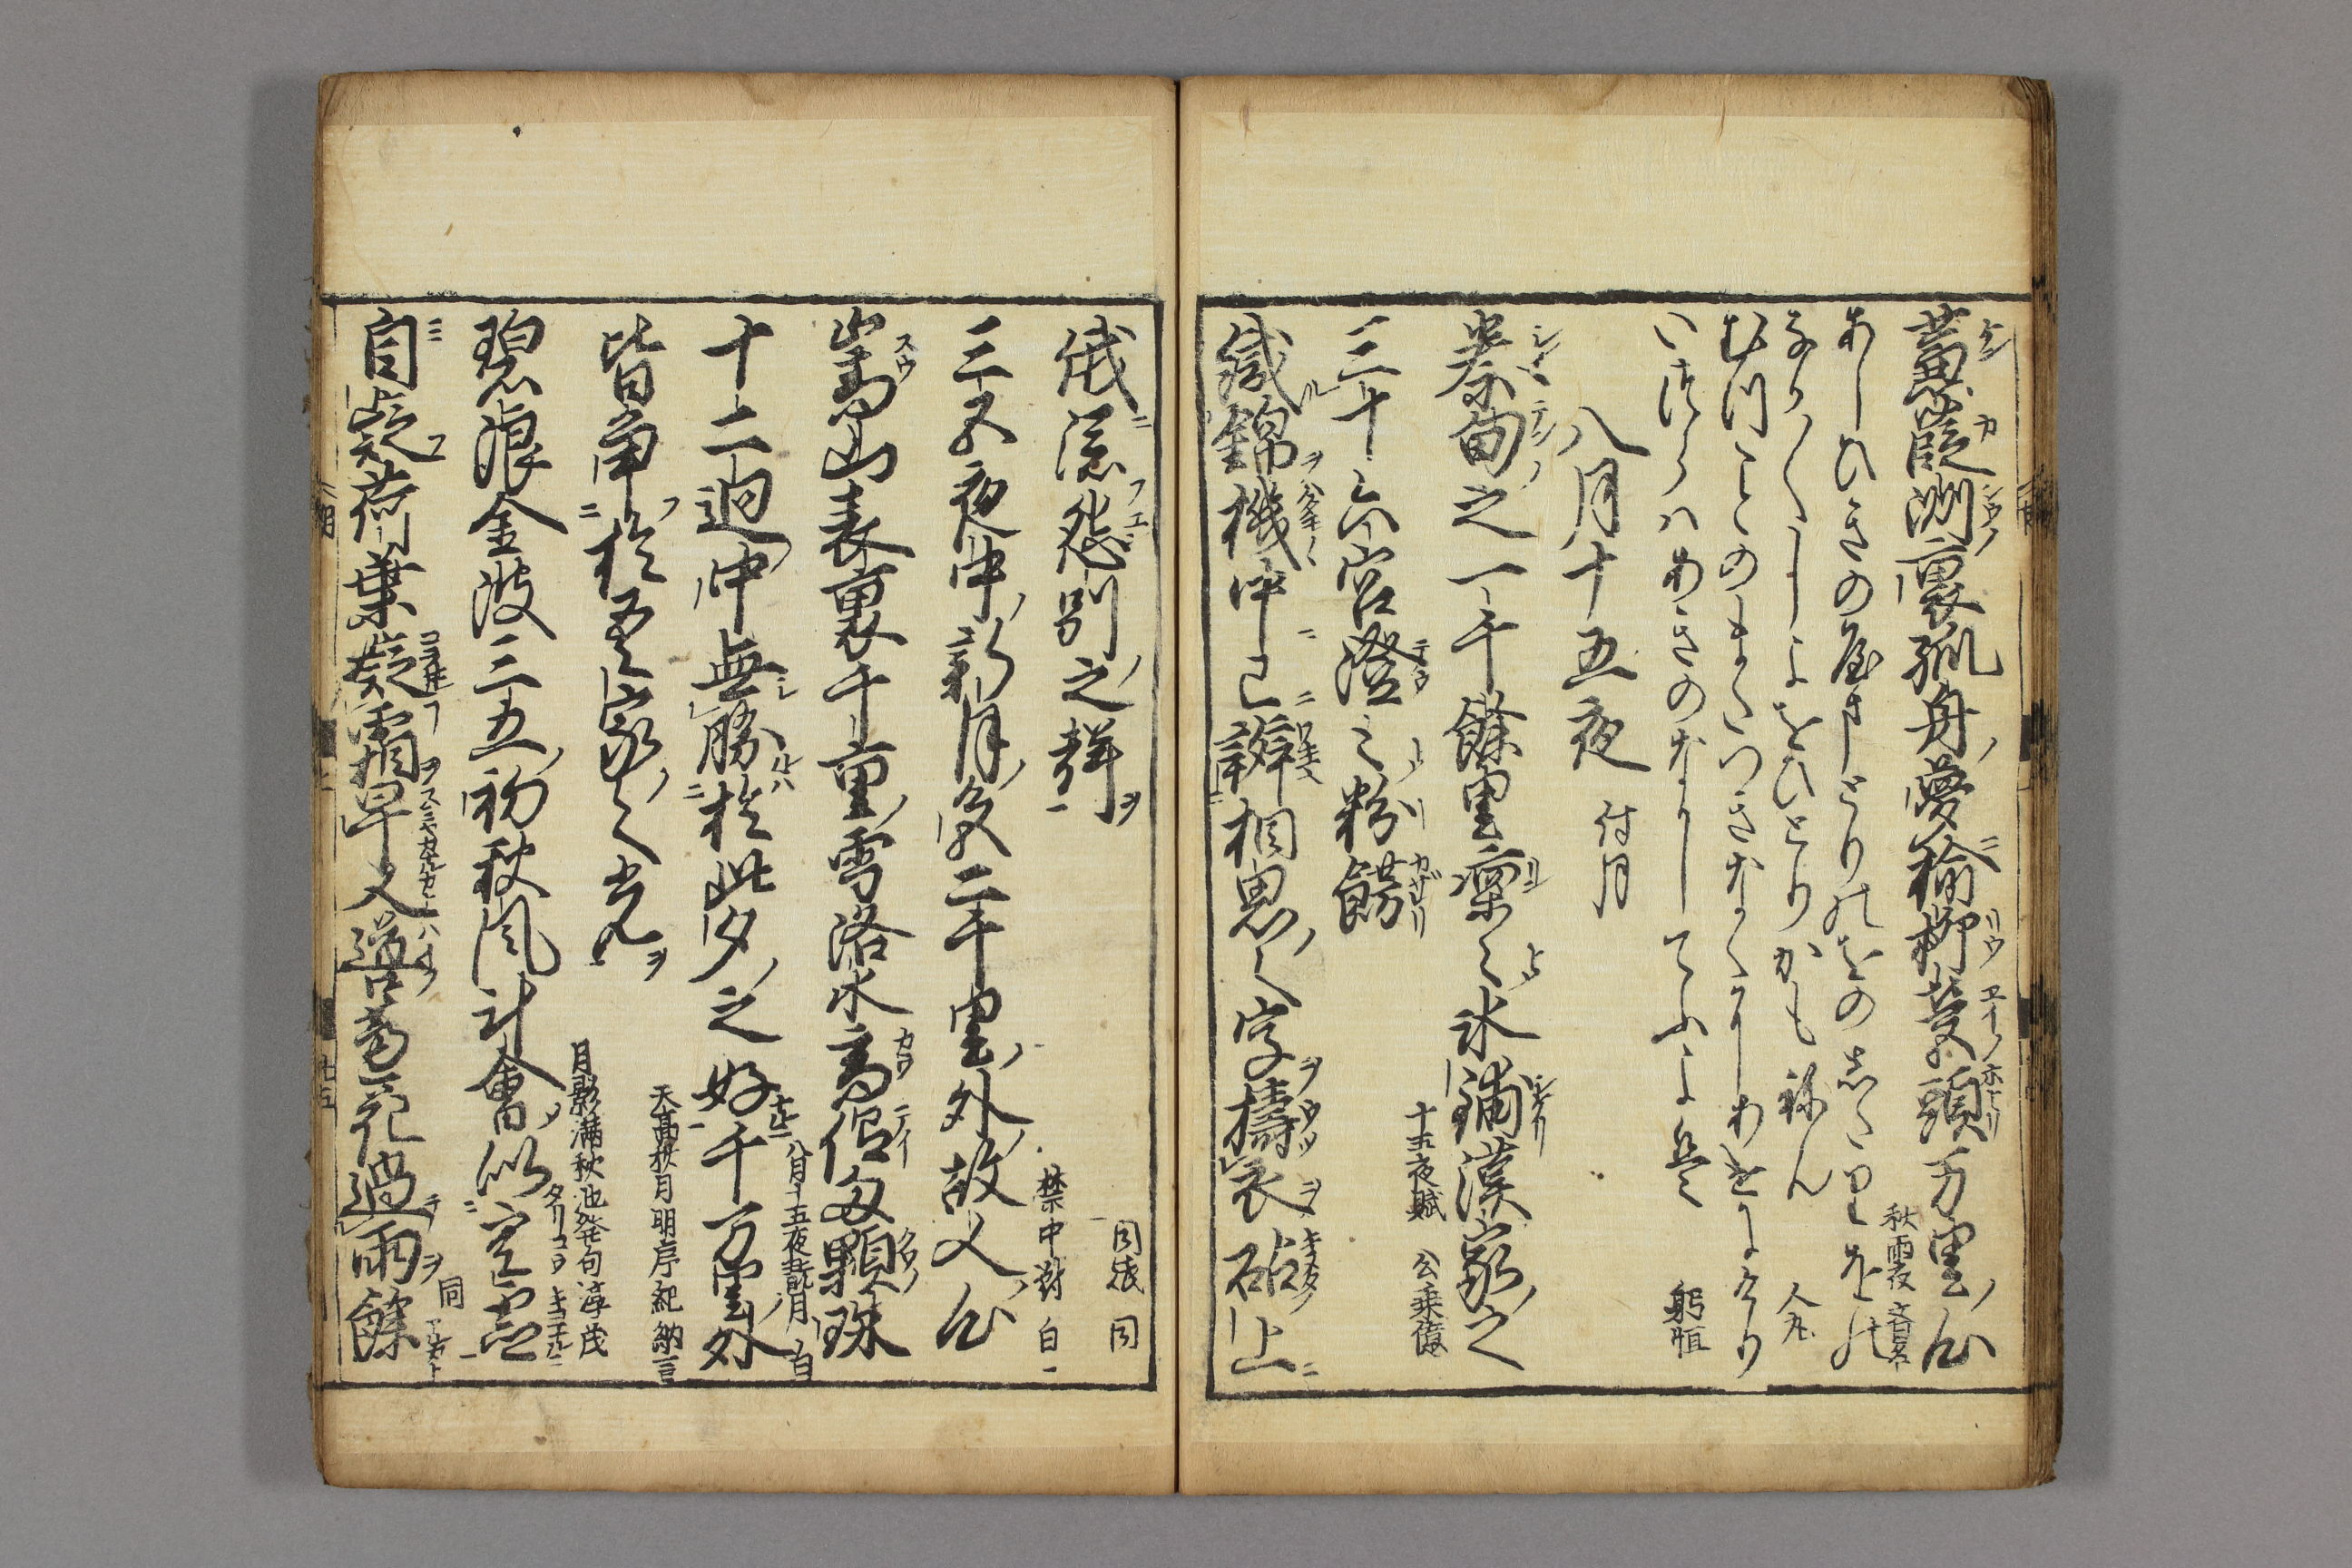 蒹葭洲裏孤舟夢榆柳營頭万里心
秋夜雨 斉名
あしひきの山とりのをのしたりをの
なか〱しよをひとりかもねん 人丸
むつことのまたつきなくにあけにけり
いつらはあきのなかしてふよは 躬恒
八月十五夜 付月
秦甸之一千餘里凛〻氷鋪漢家之
三十六宮澄〻粉餝
十五夜賦 公乗億
織錦機中已辨相思〻字擣衣砧上
俄添怨別之聲
同後 同
三五夜中新月色二千里外故人心
禁中對 白
嵩山表裏千重雪洛水高低兩顆珠
八月十五夜翫月 白
十二廻中無勝於此夕之好千万里外
皆争於吾家〻光
天高秋月明序 紀納言
碧浪金波三五初秋風計會似空虚
月影満秋池 発句淳茂
自疑荷葉凝霜早人道蘆花過雨餘
同